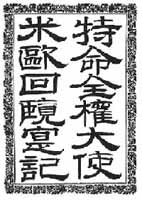 特命全權大使
米歐回覽實記